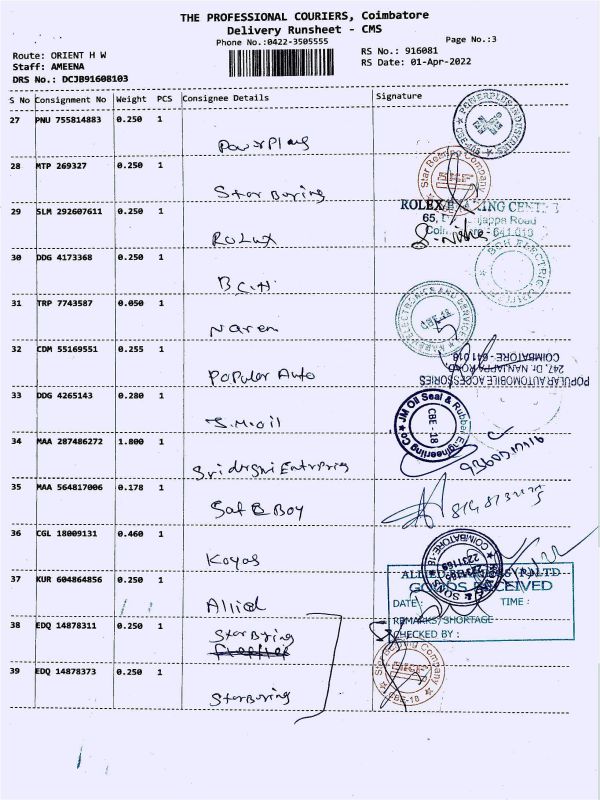 THE PROFESSIONAL COURIERS, Coimbatore
Delivery Runsheet - CMS
Phone No.:0422-3505555
Page No.:3
Route: ORIENT H W
Staff: AMEENA
DRS No.: DCJB91608103
RS No.: 916081
RS Date: 01-Apr-2022
S No Consignment No Weight PCS Consignee Details Signature
27 PNU 755814883 0.250 1
28 MTP 269327 0.250 1
Star Boring
Star Company
29 SLM 292607611 0.250 1
Rolux
ROLEX
65,
Road
641 018
30 DDG 4173368 0.250 1
31 TRP 7743587 0.050 1
Naren
CBE-18
32 CDM 55169551 0.255 1
Popular Auto
POPULAR AUTOMOBILE ACCESSORIES
247, Dr. NANJAPPA ROAD
COIMBATORE - 641 018
33 DDG 4265143 0.280 1
J.M.oil
JM Oil Seal & Rubber Engineering Co
CBE - 18
34 MAA 287486272 1.800 1
35 MAA 564817006 0.178 1
36 CGL 18009131 0.460 1
Koyas
COIMBATORE-18
2231169
& SONS
37 KUR 604864856 0.250 1
Allied
GOODS RECEIVED
DATE:
TIME :
REMARKS/SHORTAGE
CHECKED BY :
38 EDQ 14878311 0.250 1
Star Boring
39 EDQ 14878373 0.250 1
Star Boring
Star Company
CBE-18